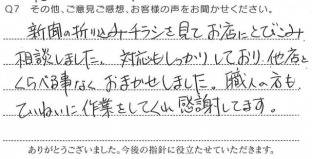 Q7 その他、ご意見ご感想、お客様の声をお聞かせください。
新聞の折り込みチラシを見てお店にとびこみ
相談しました。対応もしっかりしており他店と
くらべる事なくおまかせしました。職人の方も
ていねいに作業をしてくれ感謝してます。
ありがとうございました。今後の指針に役立たせていただきます。